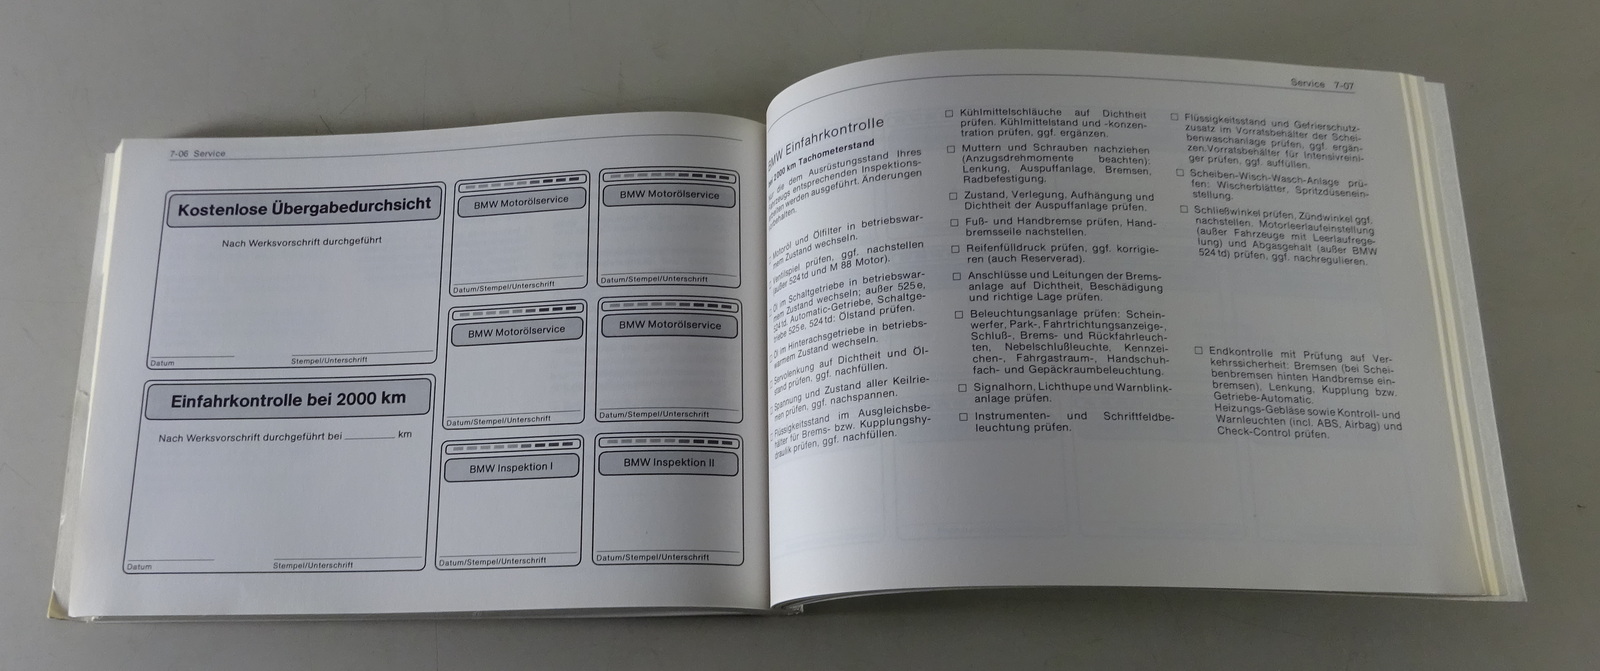 7-06 Service
Kostenlose Übergabedurchsicht
Nach Werksvorschrift durchgeführt
Datum
Stempel/Unterschrift
Einfahrkontrolle bei 2000 km
Nach Werksvorschrift durchgeführt bei km
Datum
Stempel/Unterschrift
BMW Motorölservice
Datum/Stempel/Unterschrift
BMW Motorölservice
Datum/Stempel/Unterschrift
BMW Motorölservice
Datum/Stempel/Unterschrift
BMW Motorölservice
Datum/Stempel/Unterschrift
BMW Inspektion I
Datum/Stempel/Unterschrift
BMW Inspektion II
Datum/Stempel/Unterschrift
Service 7-07
BMW Einfahrkontrolle
bei 2000 km Tachometerstand
die dem Ausrüstungsstand Ihres
Fahrzeugs entsprechenden Inspektions-
werden ausgeführt. Änderungen
Motoröl und Ölfilter in betriebswar-
mem Zustand wechseln.
Ventilspiel prüfen, ggf. nachstellen
(außer 524td und M 88 Motor).
Öl im Schaltgetriebe in betriebswar-
mem Zustand wechseln; außer 525e,
524td. Automatic-Getriebe, Schaltge-
triebe 525e, 524td: Ölstand prüfen.
Öl im Hinterachsgetriebe in betriebs-
warmem Zustand wechseln.
Servolenkung auf Dichtheit und Öl-
stand prüfen, ggf. nachfüllen.
Spannung und Zustand aller Keilrie-
men prüfen, ggf. nachspannen.
Flüssigkeitsstand im Ausgleichsbe-
hälter für Brems- bzw. Kupplungshy-
draulik prüfen, ggf. nachfüllen.
☐ Kühlmittelschläuche auf Dichtheit
prüfen. Kühlmittelstand und -konzen-
tration prüfen, ggf. ergänzen.
☐ Muttern und Schrauben nachziehen
(Anzugsdrehmomente beachten):
Lenkung, Auspuffanlage, Bremsen,
Radbefestigung.
☐ Zustand, Verlegung, Aufhängung und
Dichtheit der Auspuffanlage prüfen.
☐ Fuß- und Handbremse prüfen, Hand-
bremsseile nachstellen.
☐ Reifenfülldruck prüfen, ggf. korrigie-
ren (auch Reserverad).
☐ Anschlüsse und Leitungen der Brems-
anlage auf Dichtheit, Beschädigung
und richtige Lage prüfen.
☐ Beleuchtungsanlage prüfen: Schein-
werfer, Park-, Fahrtrichtungsanzeige-,
Schluß-, Brems- und Rückfahrleuch-
ten, Nebelschlußleuchte, Kennzei-
chen-, Fahrgastraum-, Handschuh-
fach- und Gepäckraumbeleuchtung.
☐ Signalhorn, Lichthupe und Warnblink-
anlage prüfen.
☐ Instrumenten- und Schriftfeldbe-
leuchtung prüfen.
☐ Flüssigkeitsstand und Gefrierschutz-
zusatz im Vorratsbehälter der Schei-
benwaschanlage prüfen, ggf. ergän-
zen. Vorratsbehälter für Intensivreini-
ger prüfen, ggf. auffüllen.
☐ Scheiben-Wisch-Wasch-Anlage prü-
fen: Wischerblätter, Spritzdüsenein-
stellung.
☐ Schließwinkel prüfen, Zündwinkel ggf.
nachstellen. Motorleerlaufeinstellung
(außer Fahrzeuge mit Leerlaufrege-
lung) und Abgasgehalt (außer BMW
524td) prüfen, ggf. nachregulieren.
☐ Endkontrolle mit Prüfung auf Ver-
kehrssicherheit: Bremsen (bei Schei-
benbremsen hinten Handbremse ein-
bremsen), Lenkung, Kupplung bzw.
Getriebe-Automatic.
Heizungs-Gebläse sowie Kontroll- und
Warnleuchten (incl. ABS, Airbag) und
Check-Control prüfen.